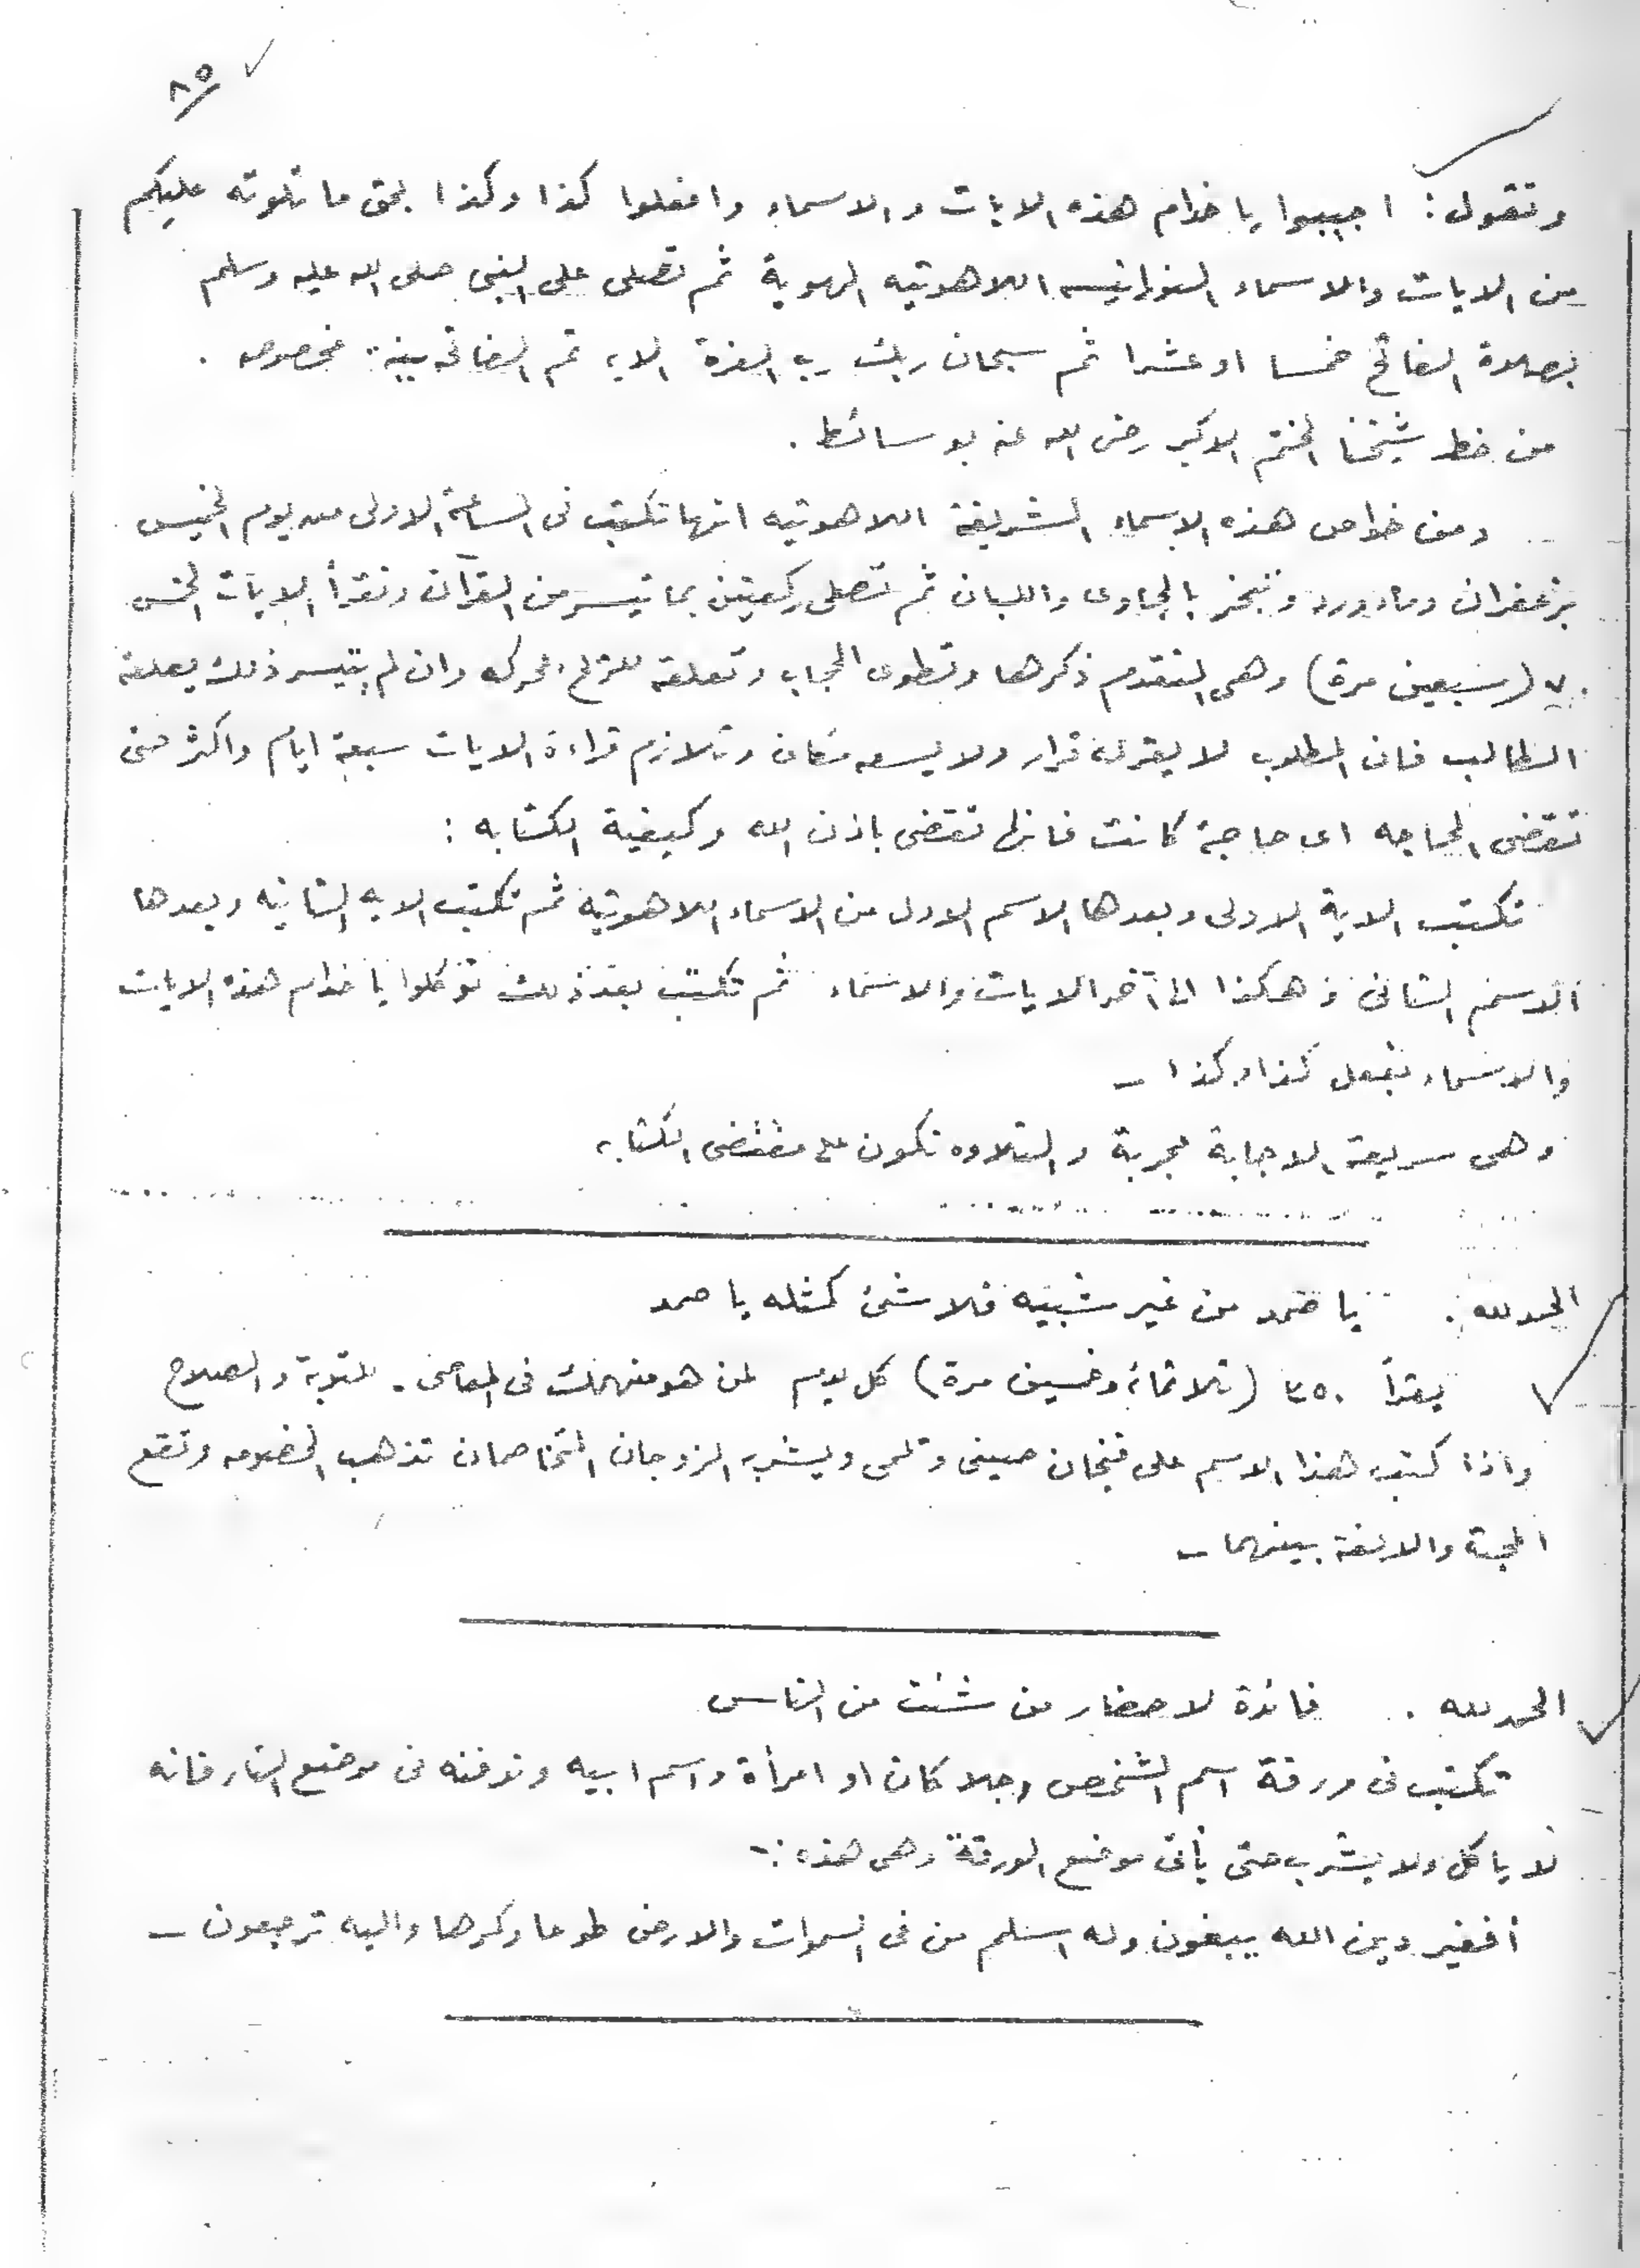 ٨٥
وتقول : اجيبوا يا خدام هذه الايات والاسماء وافعلوا كذا وكذا بحق ما تلوته عليكم
من الايات والاسماء النورانيه اللاهوتيه المهوية ثم تصلى على النبى صلى الله عليه وسلم
بصلاة الفاتح خمسا او عشرا ثم سبحان ربك رب العزة الايه ثم الفاتحه بنية مخصوصه .
من خط شيخنا الختم الاكبر رضى الله عنه بوسائط .
ومن خواص هذه الاسماء الشريفة اللاهوتيه انها تكتب فى الساعة الاولى من يوم الخميس
بزعفران وماء ورد وتبخر بالجاوى واللبان ثم تصلى ركعتين بما تيسر من القرآن وتقرأ الايات الخمس
٧٠ (سبعين مرة) وهى المتقدم ذكرها وتطوى الحجاب وتعلقه للريح تحركه وان لم يتيسر ذلك يعلقه
الطالب فان المطلوب لا يقر له قرار ولا يسعه مكان وتلازم قراءة الايات سبعة ايام واكثر حتى
تقضى الحاجه اى حاجة كانت فانها تقضى باذن الله وكيفية الكتابه :
تكتب الاية الاولى وبعدها الاسم الاول من الاسماء اللاهوتيه ثم تكتب الايه الثانيه وبعدها
الاسم الثانى وهكذا الى آخر الايات والاسماء ثم تكتب بعد ذلك توكلوا يا خدام هذه الايات
والاسماء بفعل كذا وكذا _
وهى سريعة الاجابة مجربة والتلاوه تكون على مقتضى الكتابه
الحمد لله . يا صمد من غير شبيه فلا شئ كمثله يا صمد
يقرأ ٣٥٠ (ثلاثمائة وخمسين مرة) كل يوم لمن هو منهمك فى المعاصى . للتوبة والصلاح
واذا كتب هذا الاسم على فنجان صينى وتمحى ويشربه الزوجان المتخاصمان تذهب الخصومه وتقع
المحبة والالفة بينهما _
الحمد لله . فائدة لاحضار من شئت من الناس
تكتب فى ورقة اسم الشخص رجلا كان او امرأة واسم ابيه وتدفنه فى موضع النار فانه
لا ياكل ولا يشرب حتى يأتى موضع الورقة وهى هذه :-
أفغير دين الله يبغون وله اسلم من فى السموات والارض طوعا وكرها واليه ترجعون _